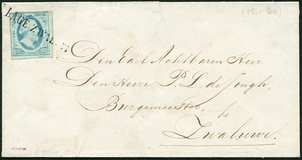 LAGE ZWAL
Den Edel Achtbaren Heer
Den Heere P. L. de Jongh,
Burgemeester te
Zwaluwe.